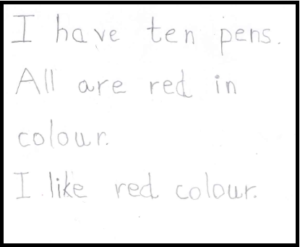 I have ten pens.
All are red in
colour.
I like red colour.